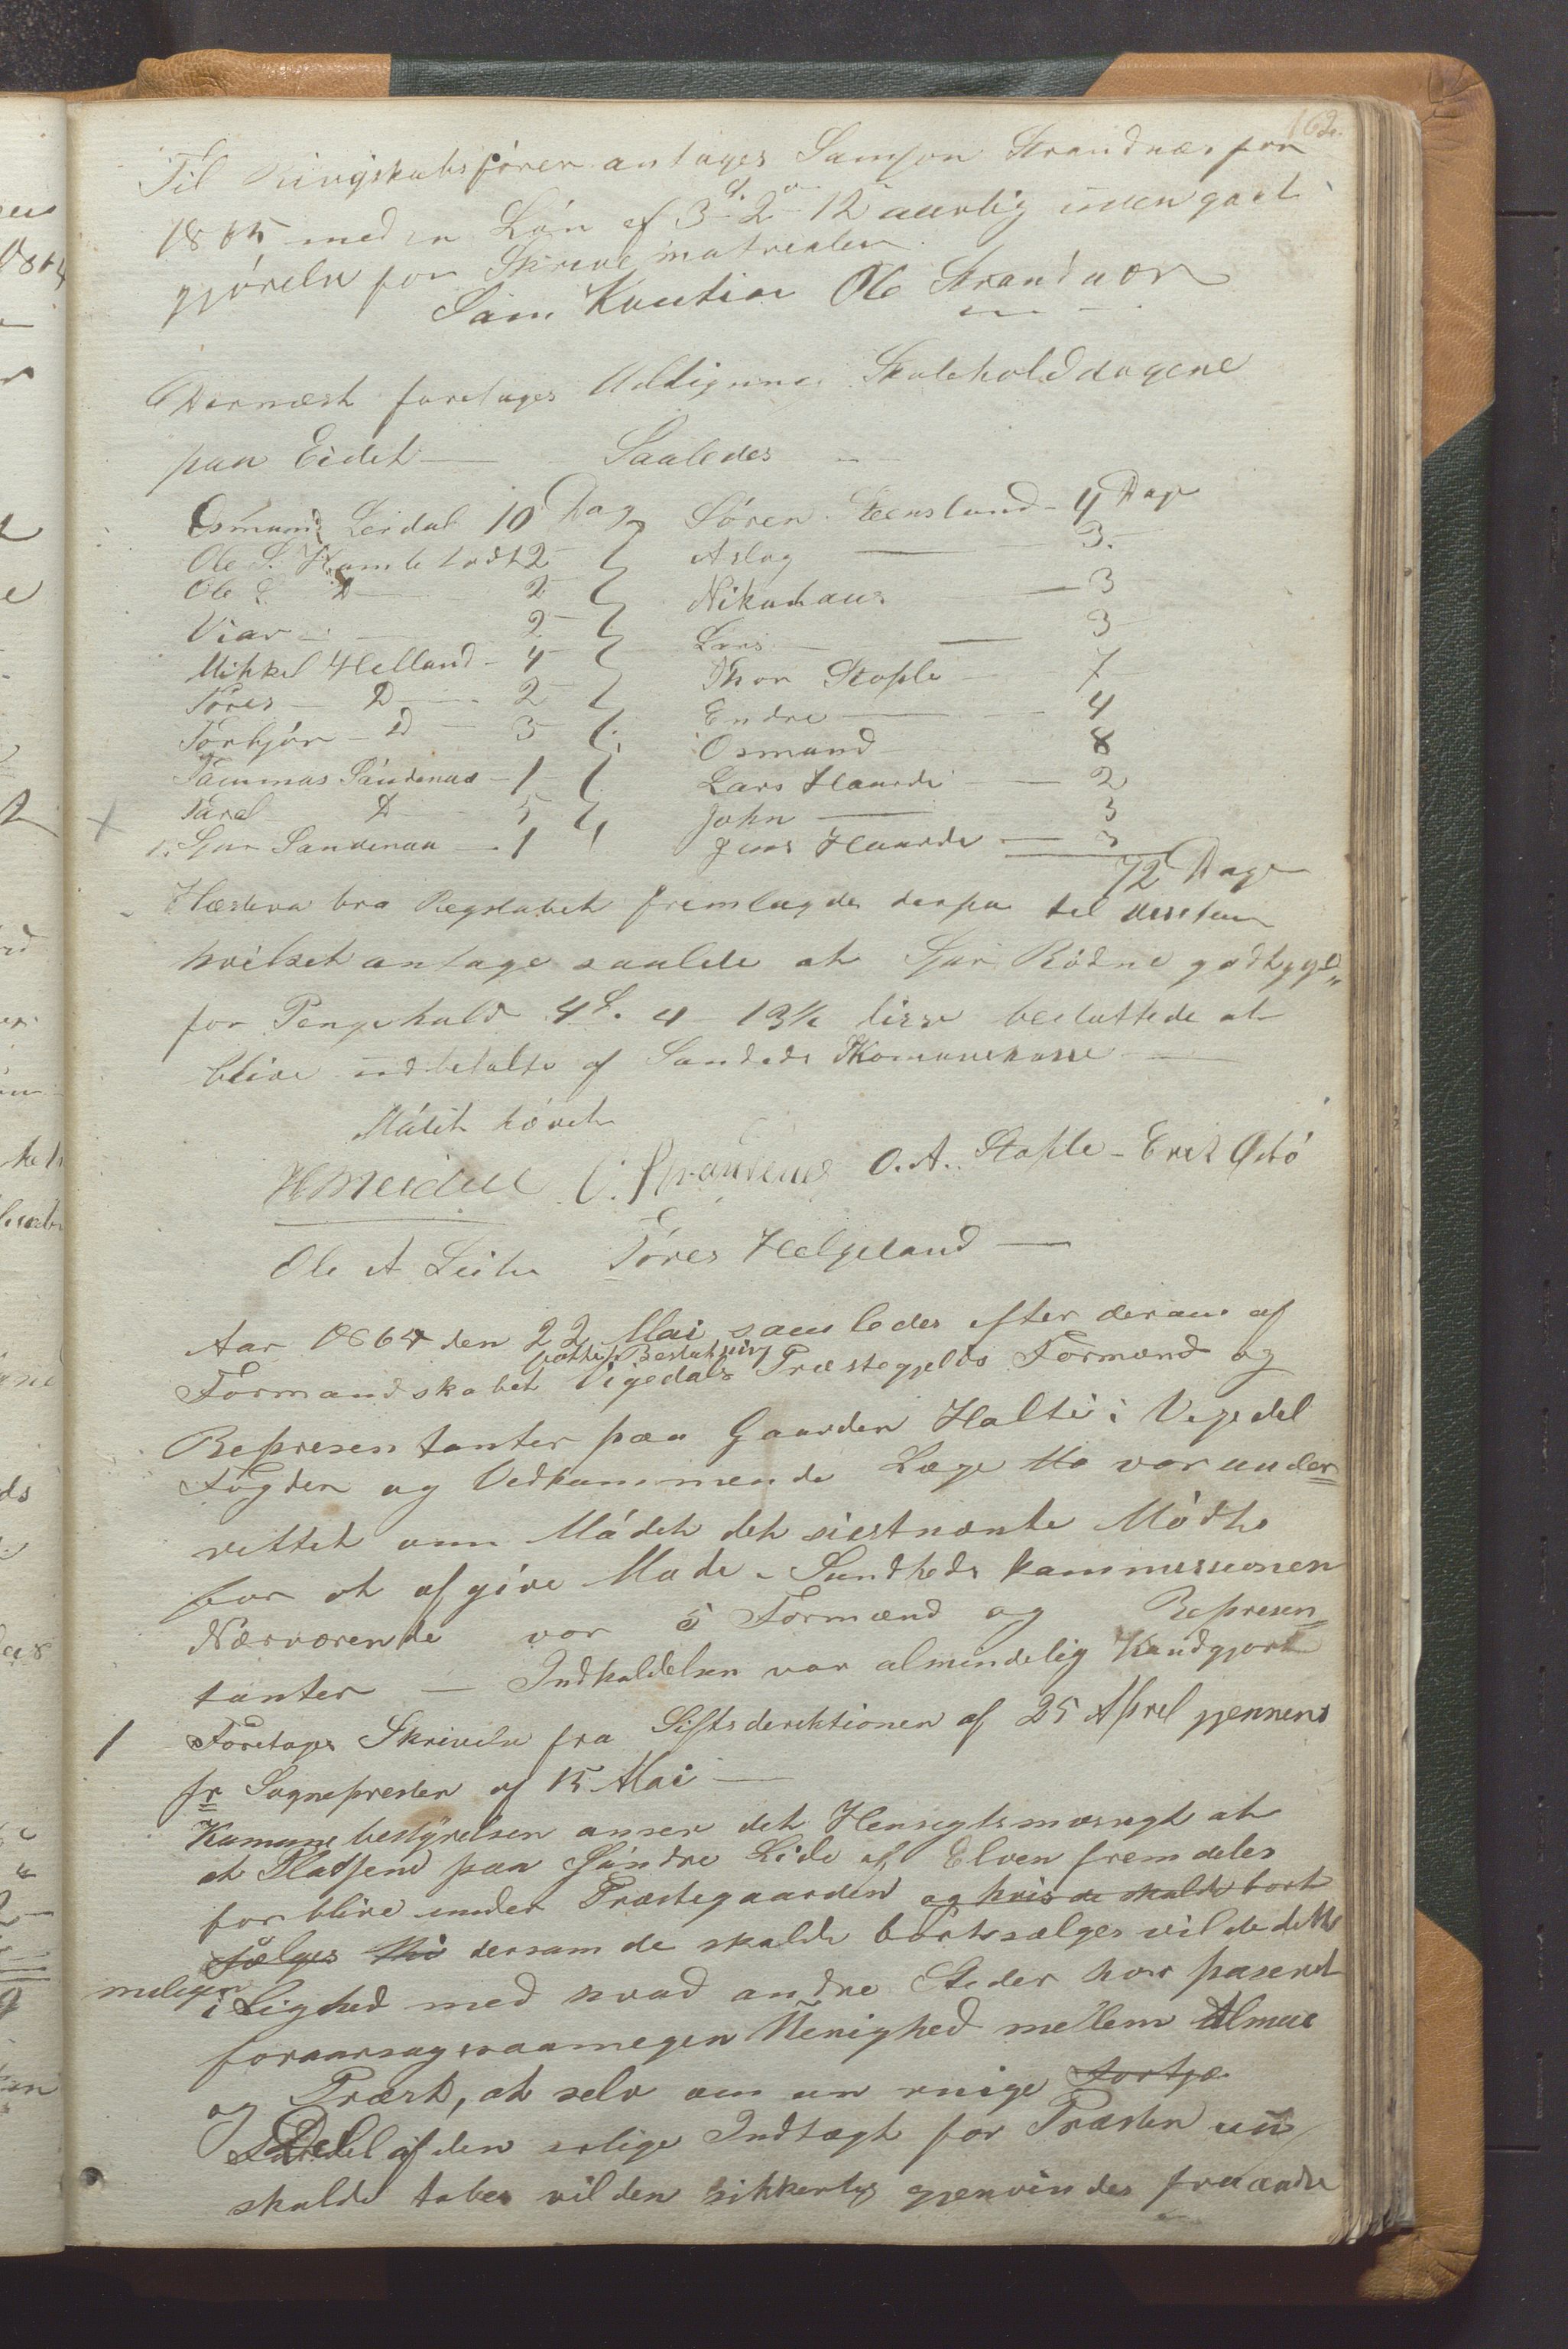 162.
Til antages Samson Strandnæs for
1865 med en Lön af 3 d. 2 o. 12 s aarlig uden godt
gjörelse for Skrive matrialer
Som Kautior Ole Strandnæs
Dernæst foretages Udligning Skoleholddagene
paa Eidet — Saaledes
Osmund Leidal 10 Dag Sören Steensland - 4 Dage
Ole S. 2 Aslag — 3.
Ole D 2 Nikolaus — 3
Viar 2 Lars — 3
Mikkel Helland - 4 Thor Stople 7
Töres — D — 2 Endre — 4
Torbjörn - D 3 Osmund 8
Tammas Söndenaa - 1 Lars Haarde — 2
+ Tarel D 5 John — 3
1. Sjur Sandenaa — 1 Jens Haarde — 3
72 Dage
fremlagdes derpaa til
hvilket antage saalede at Sjur Rödne godtgj
for Pengehold 4 d. 4 13½ disse besluttede at
blive udbetalte af Sandeids Komunekasse —
Mödet hævet
H Meidell O. Strandenes O. A. Stople - Erik Östö
Ole A Leite Töres Helgeland —
Aar 1864 den 22 Mai samledes efter deraus af
fattet Beslutning
Formandskabet Vigedals Præstegjelds Formænd og
Representanter paa Gaarden Halte i Vigedal
Fogden og Vedkommende Læge Mo var under
rettet om Mödet det siestnænte Mödte
for at afgive Möde i Sundheds kommissionen
Nærværende var 5 Formænd og Represen
tanter — Indkaldelsen var almindelig Kundgjort
1 Foretoges Skrivelse fra Siftsderektionen af 25 April gjennem
fr Sognepresten af 15 Mai —
Kumune bestyrelsen anser det Hensegtsmæsegt at
at Pladsene paa Söndre Side af Elven fremdeles
forblive under Præstegaarden og hvis de skulde bort
sælges dersom de skulde bortsælges vil de dette
i Lighed med hvad andre Steder har paseret
foraarsag saamegen Uenighed mellem Almue
og Præst, at selv om en ringe
Deel af den aarlige Indtægt for Præsten
skulde tabes vil den sikkerlig gjenvindes fra andre